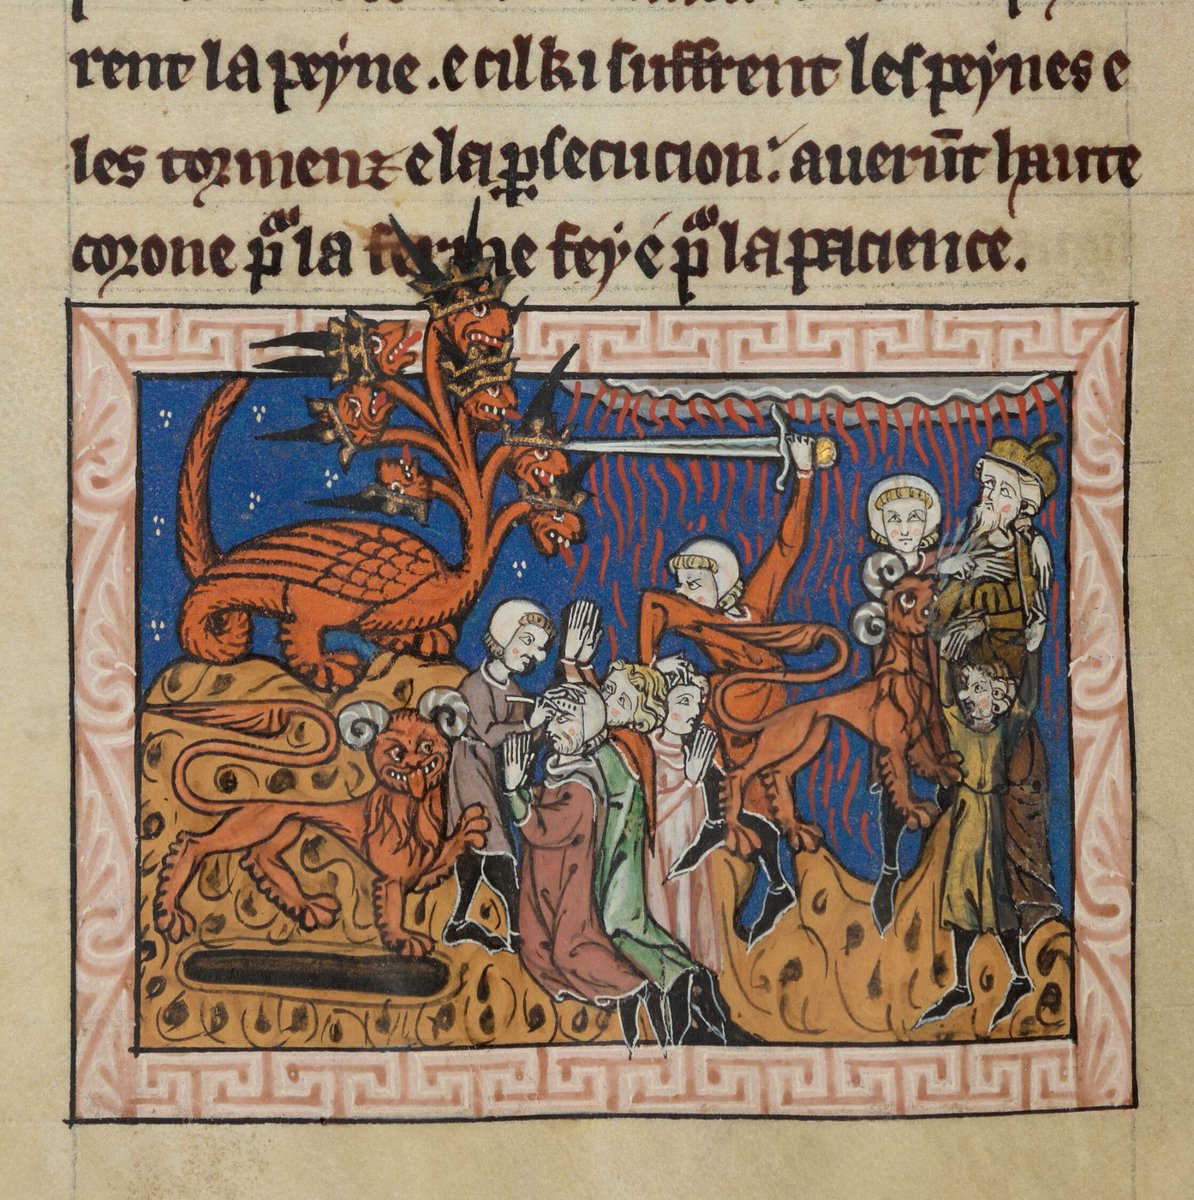 rent la peyne . e cil ki suffrent les peynes e
les tormenz e la p̱secucion : auerūt haute
corone pͣ la ferme fey é pͣ la pacience .